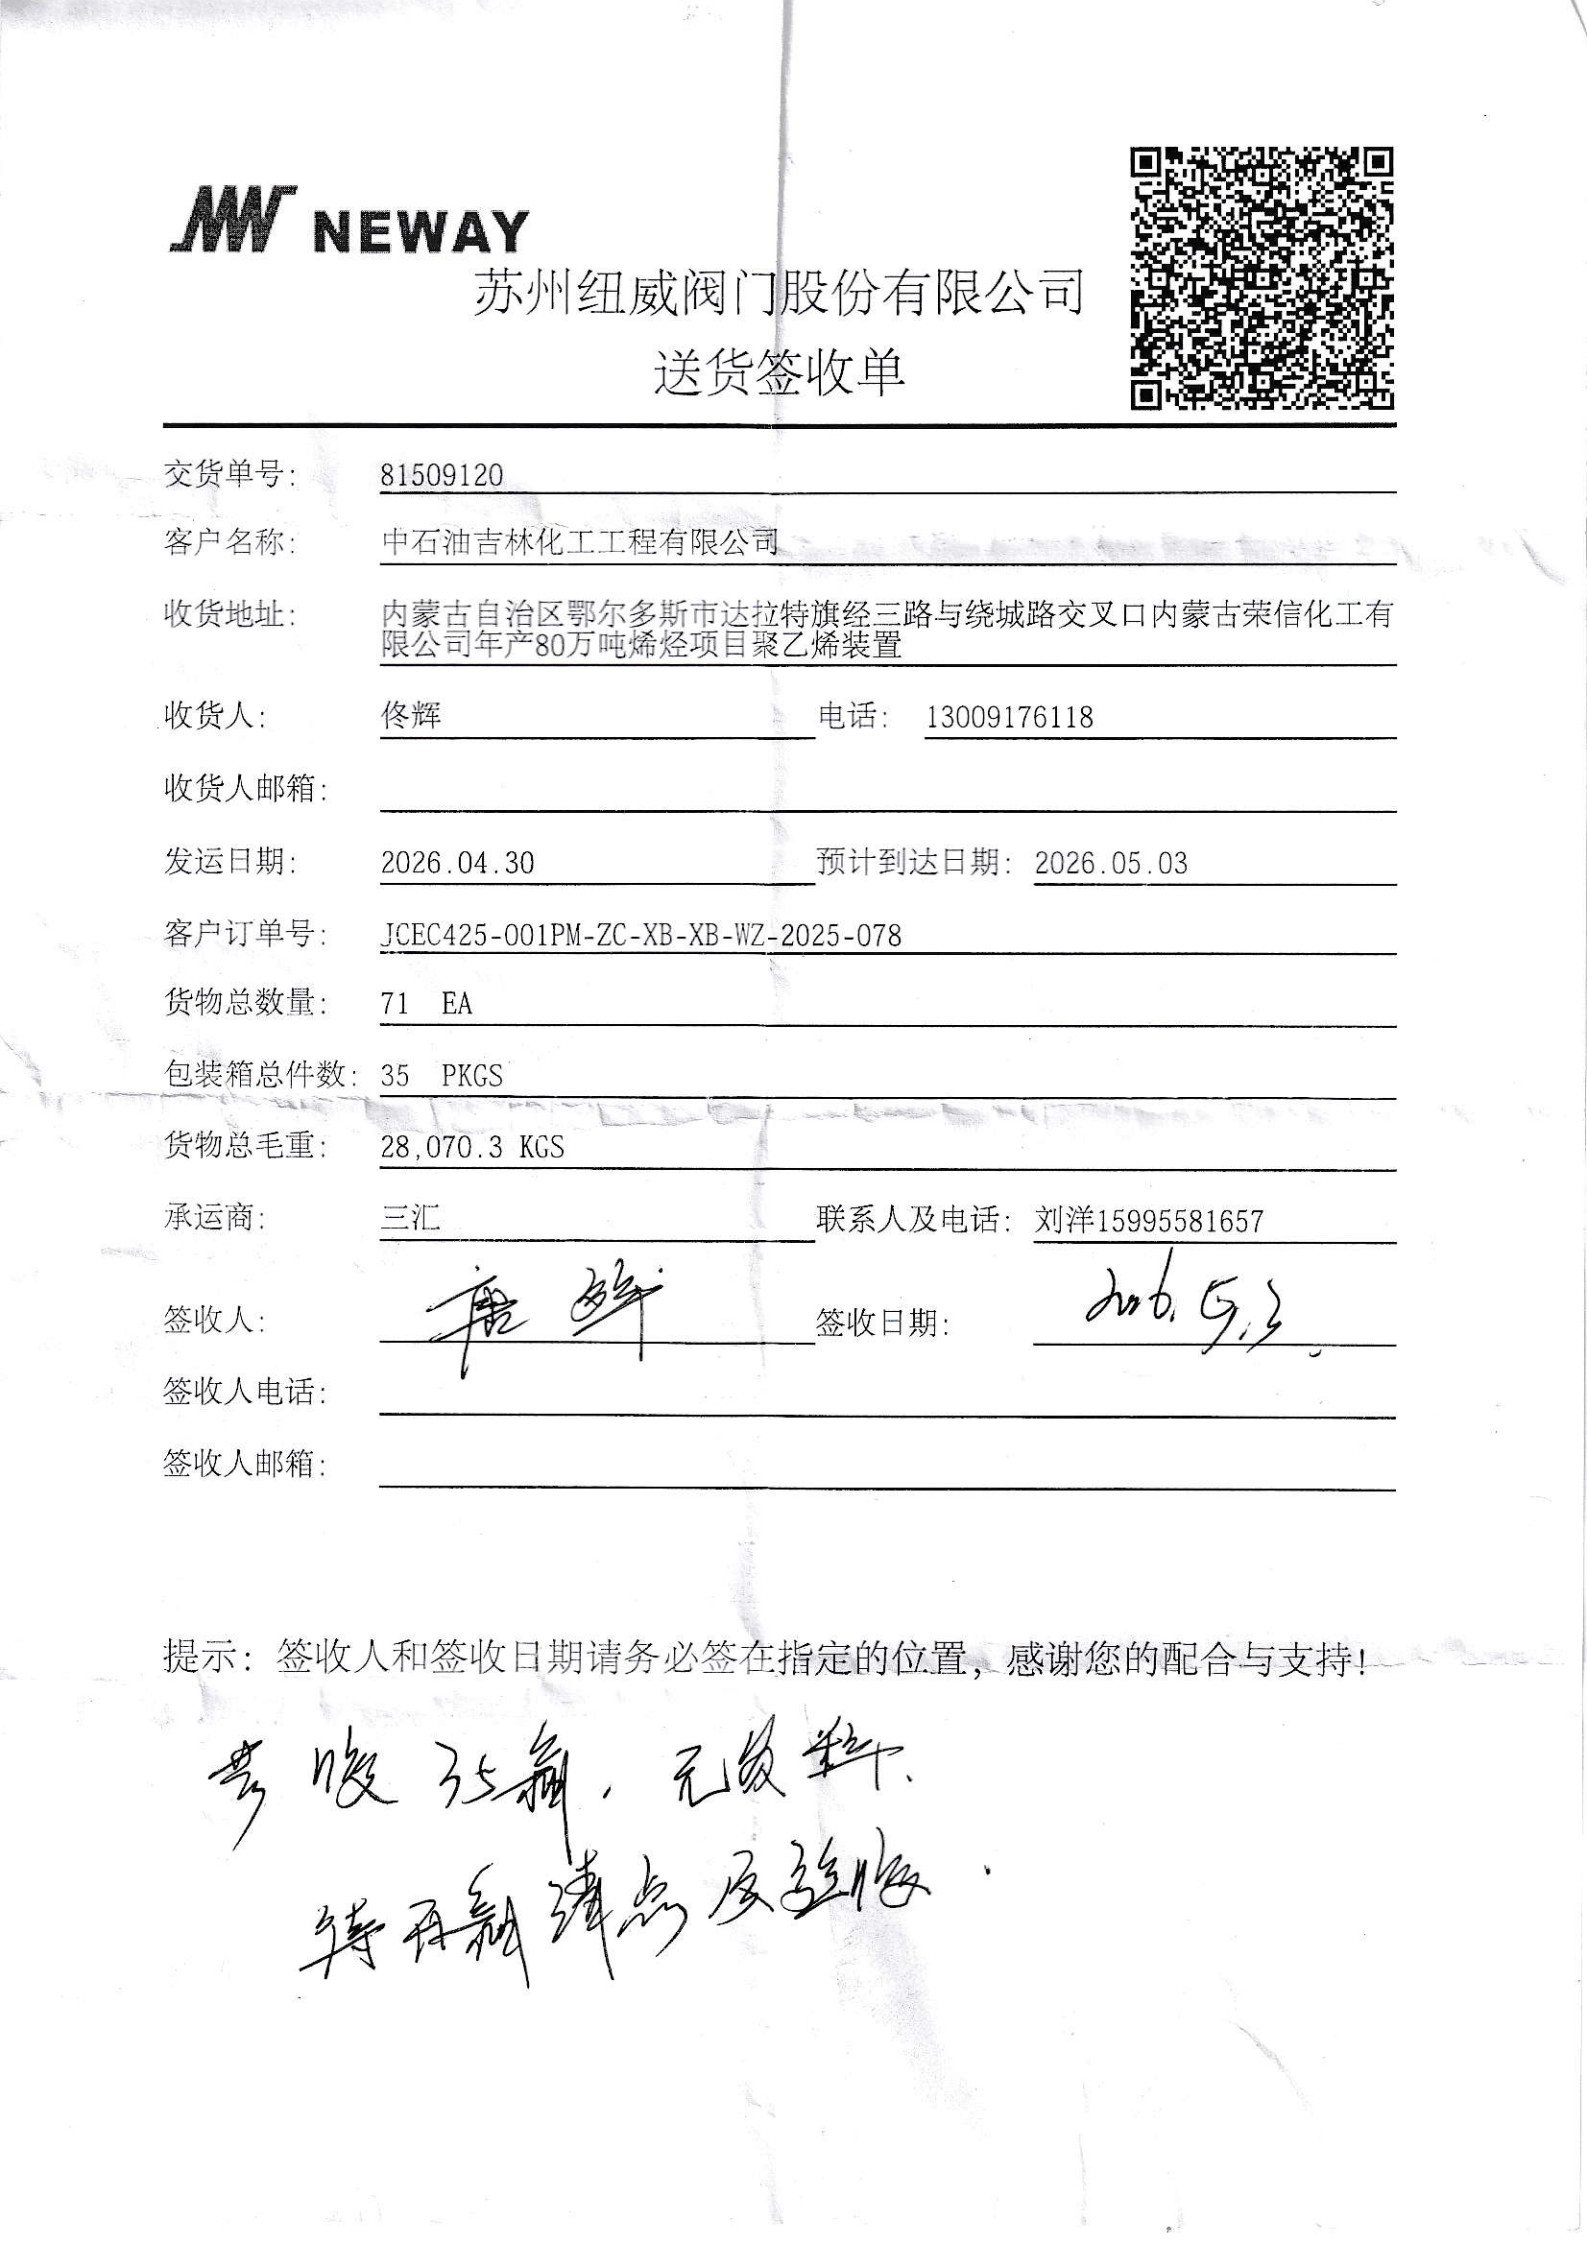 NEWAY
苏州纽威阀门股份有限公司
送货签收单
交货单号: 81509120
客户名称: 中石油吉林化工工程有限公司
收货地址: 内蒙古自治区鄂尔多斯市达拉特旗经三路与绕城路交叉口内蒙古荣信化工有
限公司年产80万吨烯烃项目聚乙烯装置
收货人: 佟辉 电话: 13009176118
收货人邮箱:
发运日期: 2026.04.30 预计到达日期: 2026.05.03
客户订单号: JCEC425-001PM-ZC-XB-XB-WZ-2025-078
货物总数量: 71 EA
包装箱总件数: 35 PKGS
货物总毛重: 28,070.3 KGS
承运商: 三汇 联系人及电话: 刘洋15995581657
签收人: 唐 签收日期: 2026.5.3
签收人电话:
签收人邮箱:
提示: 签收人和签收日期请务必签在指定的位置, 感谢您的配合与支持!
共收35箱,
待开箱清点及验收.